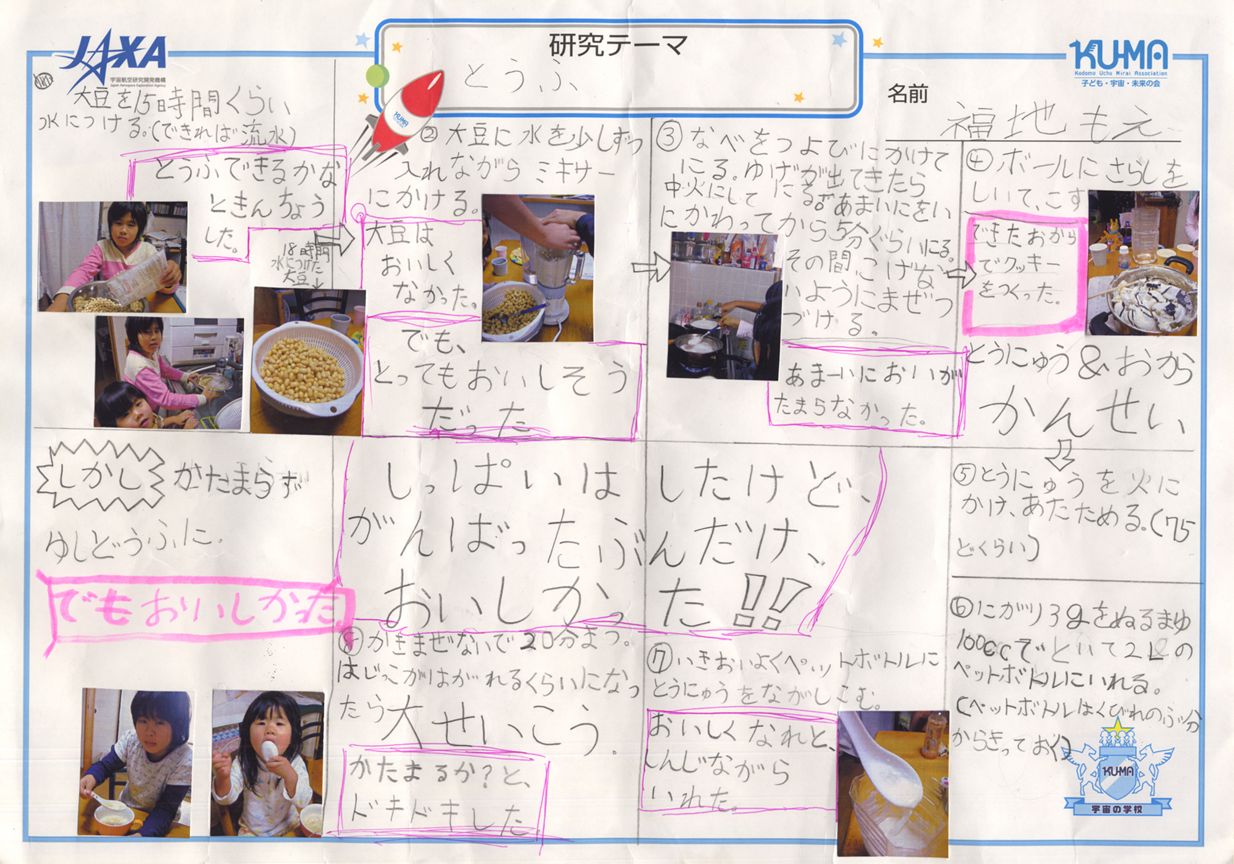 JAXA
宇宙航空研究開発機構
Japan Aerospace Exploration Agency
研究テーマ
とうふ
KU-MA
Kodomo Uchu Mirai Association
子ども・宇宙・未来の会
名前
福地もえ
大豆を15時間くらい
水につける。(できれば流水)
とうふできるかな
ときんちょう
した。
18時間
水につけた
大豆↓
②大豆に水を少しずつ
入れながら ミキサー
にかける。
大豆は
おいしく
なかった。
でも、
とってもおいしそう
だった
③なべをつよびにかけて
にる。ゆげが出てきたら
中火にして にる。あまいにをい
にかわってから5分ぐらいにる。
その間こげな
いようにまぜつ
づける。
あまーいにおいが
たまらなかった。
④ボールにさらしを
しいて、こす
できたおから
でクッキー
をつくった。
とうにゅう&おから
かんせい、
⑤とうにゅうを火に
かけ、あたためる。(75
どくらい)
⑥にがり3gをぬるまゆ
100ccでといて2Lの
ペットボトルにいれる。
(ペットボトルはくびれのぶ分
からきっておく)
KU-MA
宇宙の学校
⑦いきおいよくぺットボトルに
とうにゅうをながしこむ。
おいしくなれと、
しんじながら
いれた。
⑧かきまぜないで20分まつ。
はじっこがはがれるくらいになっ
たら大せいこう。
かたまるか?と、
ドキドキした
しかし かたまらず
ゆしどうふに.
でもおいしかった
しっぱいはしたけど、
がんばったぶんだけ、
おいしかった!!